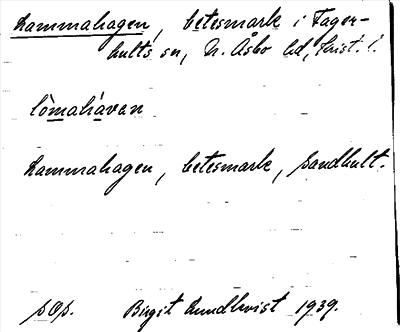 Lammahagen, betesmark i Fager-
hults sn, N. Åsbo hd, Krist. l.
lòmahàvan
Lammahagen, betesmark, Sandhult.
sOs. Birgit Lundkvist 1939.